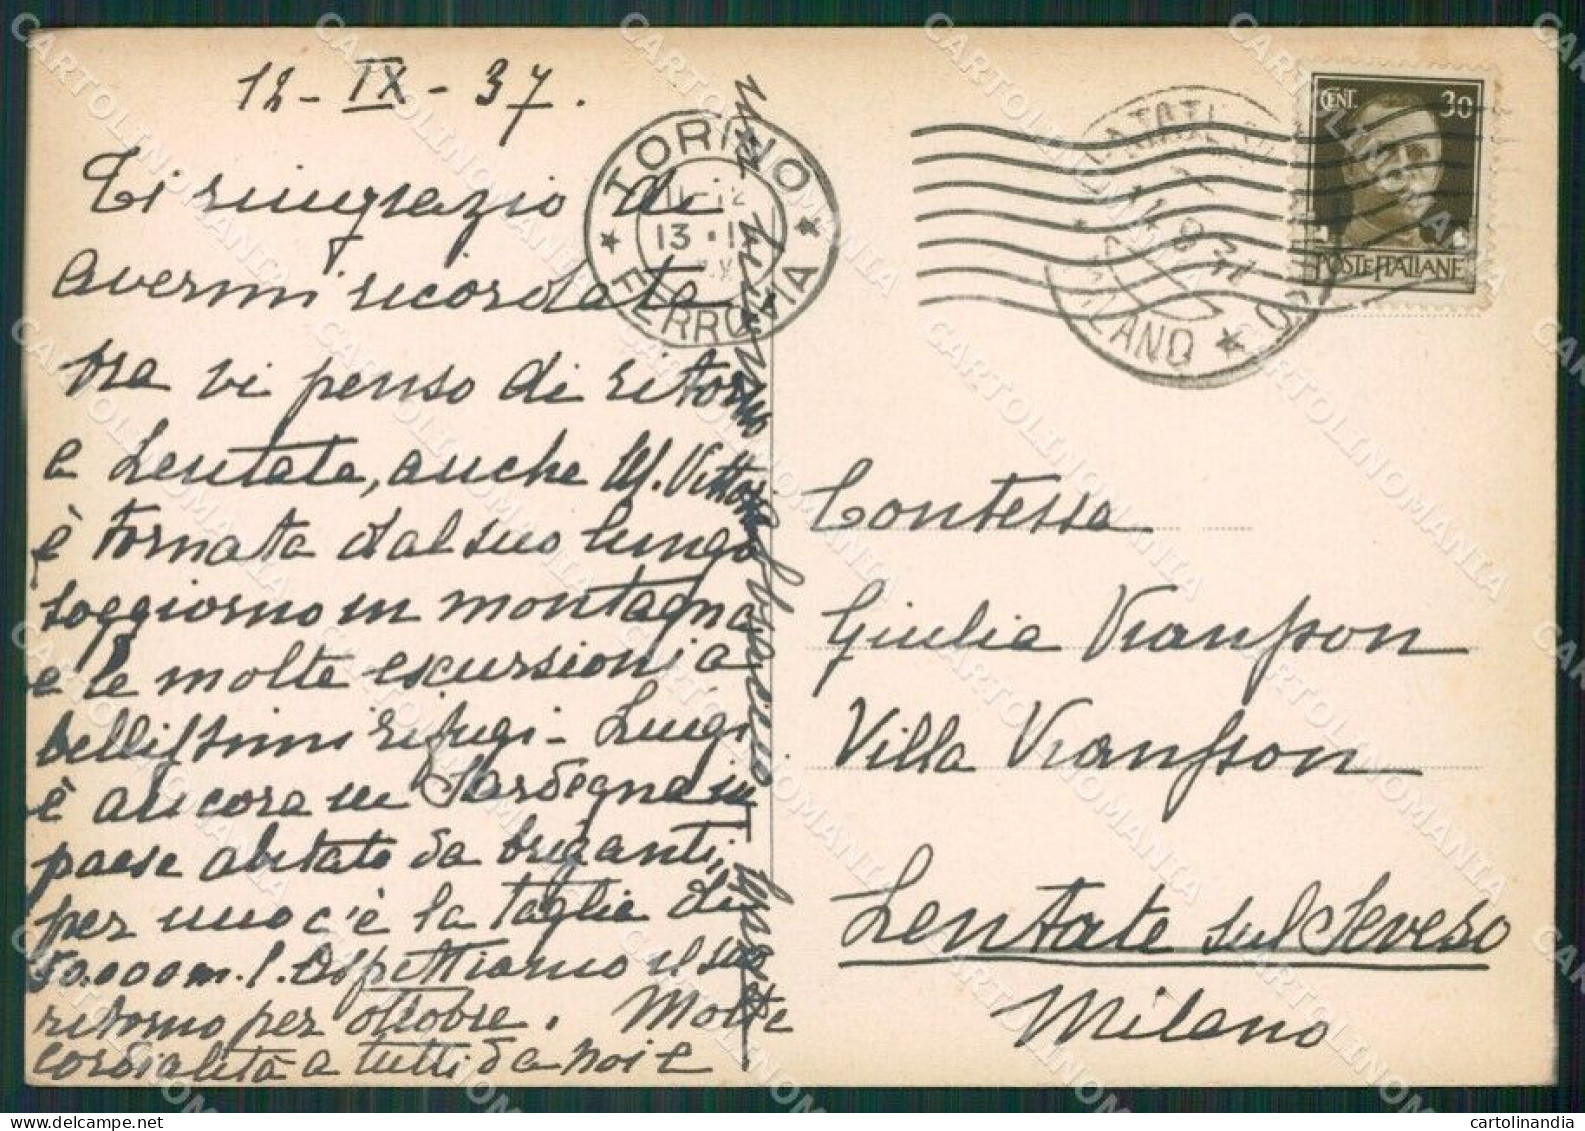 12 - IX - 37.
Ti ringrazio di
avermi ricordata
ora vi penso di ritorno
a Lentate, anche M. Vittoria
è tornata dal suo lungo
soggiorno in montagna
e le molte escursioni a
bellissimi rifugi - Luigi
è ancora in Sardegna in
paese abitato da briganti,
per uno c'è la taglia di
50.000 m. l. Aspettiamo il suo
ritorno per ottobre. Molte
cordialità a tutti da noi e
un vicinissimo abbraccio
TORINO
11-12
13 · I
FERROVIA
MILANO
CENT. 30
POSTE ITALIANE
Contessa
Giulia Vianson
Villa Vianson
Lentate sul Seveso
Milano
CARTOLINOMANIA
cartolinandia